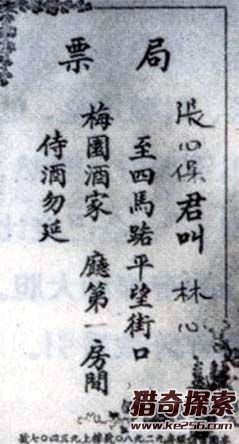 局票
張心君叫 林心
至四馬路平望街口
梅園酒家 廳第一房間
侍酒勿延
樓上九三四〇七號
猎奇探索
www.ke256.com